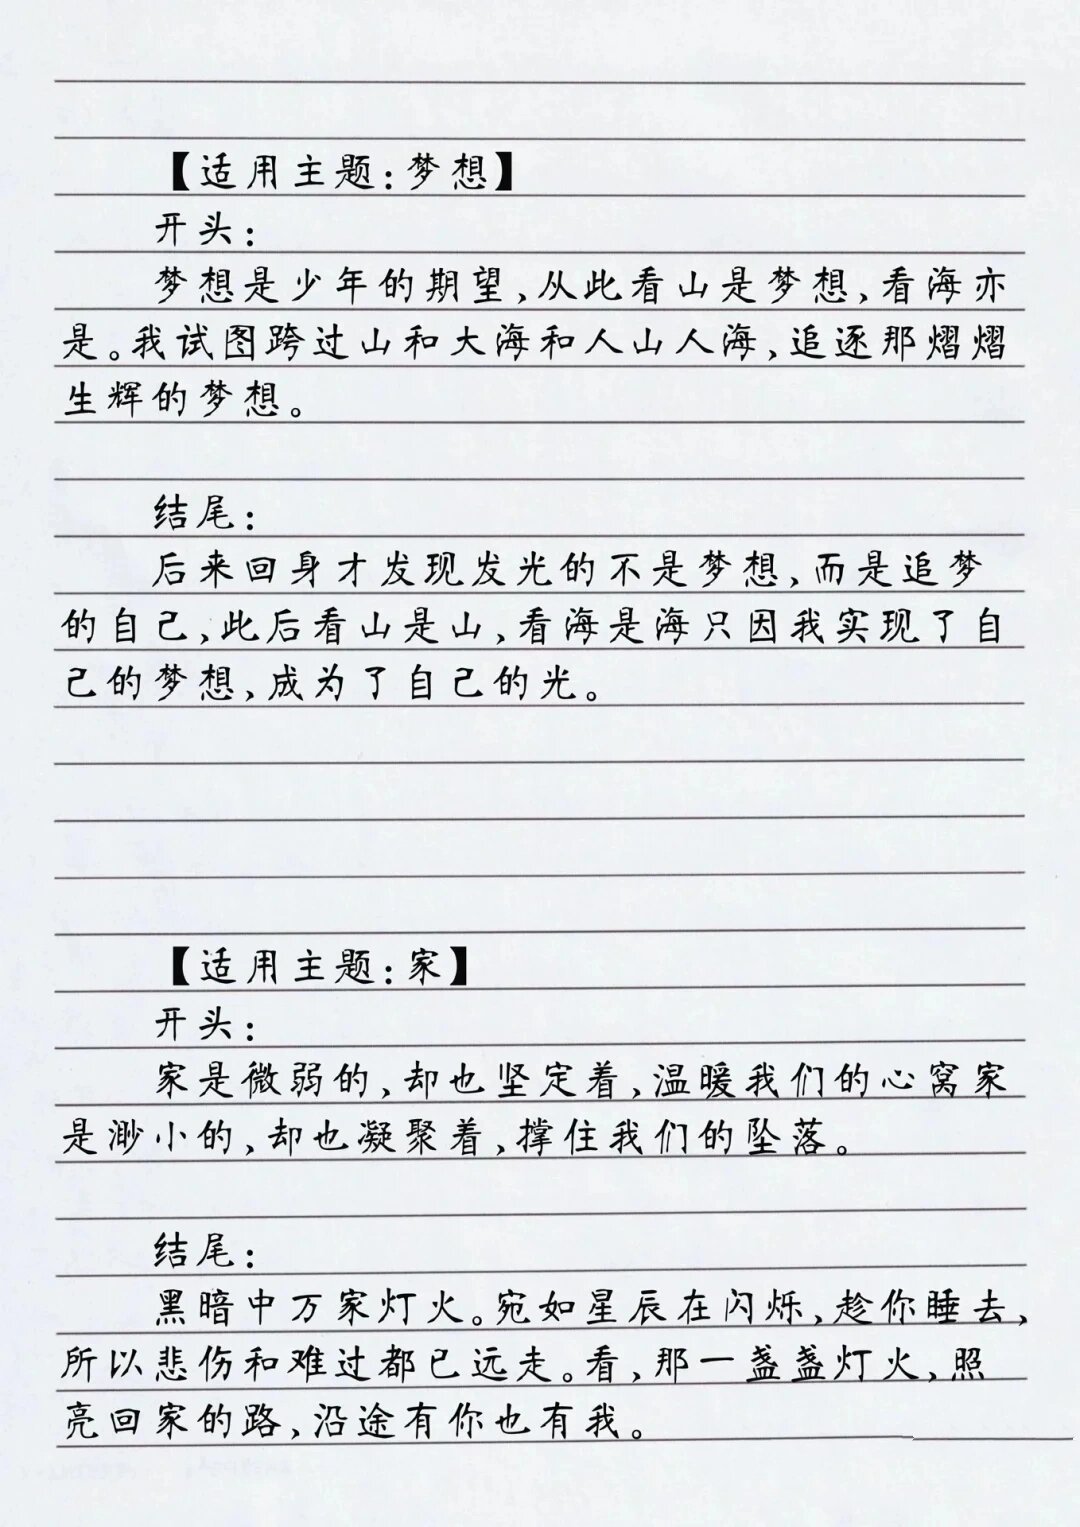 【适用主题:梦想】
开头:
梦想是少年的期望,从此看山是梦想,看海亦
是。我试图跨过山和大海和人山人海,追逐那熠熠
生辉的梦想。
结尾:
后来回身才发现发光的不是梦想,而是追梦
的自己,此后看山是山,看海是海只因我实现了自
己的梦想,成为了自己的光。
【适用主题:家】
开头:
家是微弱的,却也坚定着,温暖我们的心窝家
是渺小的,却也凝聚着,撑住我们的坠落。
结尾:
黑暗中万家灯火。宛如星辰在闪烁,趁你睡去,
所以悲伤和难过都已远走。看,那一盏盏灯火,照
亮回家的路,沿途有你也有我。